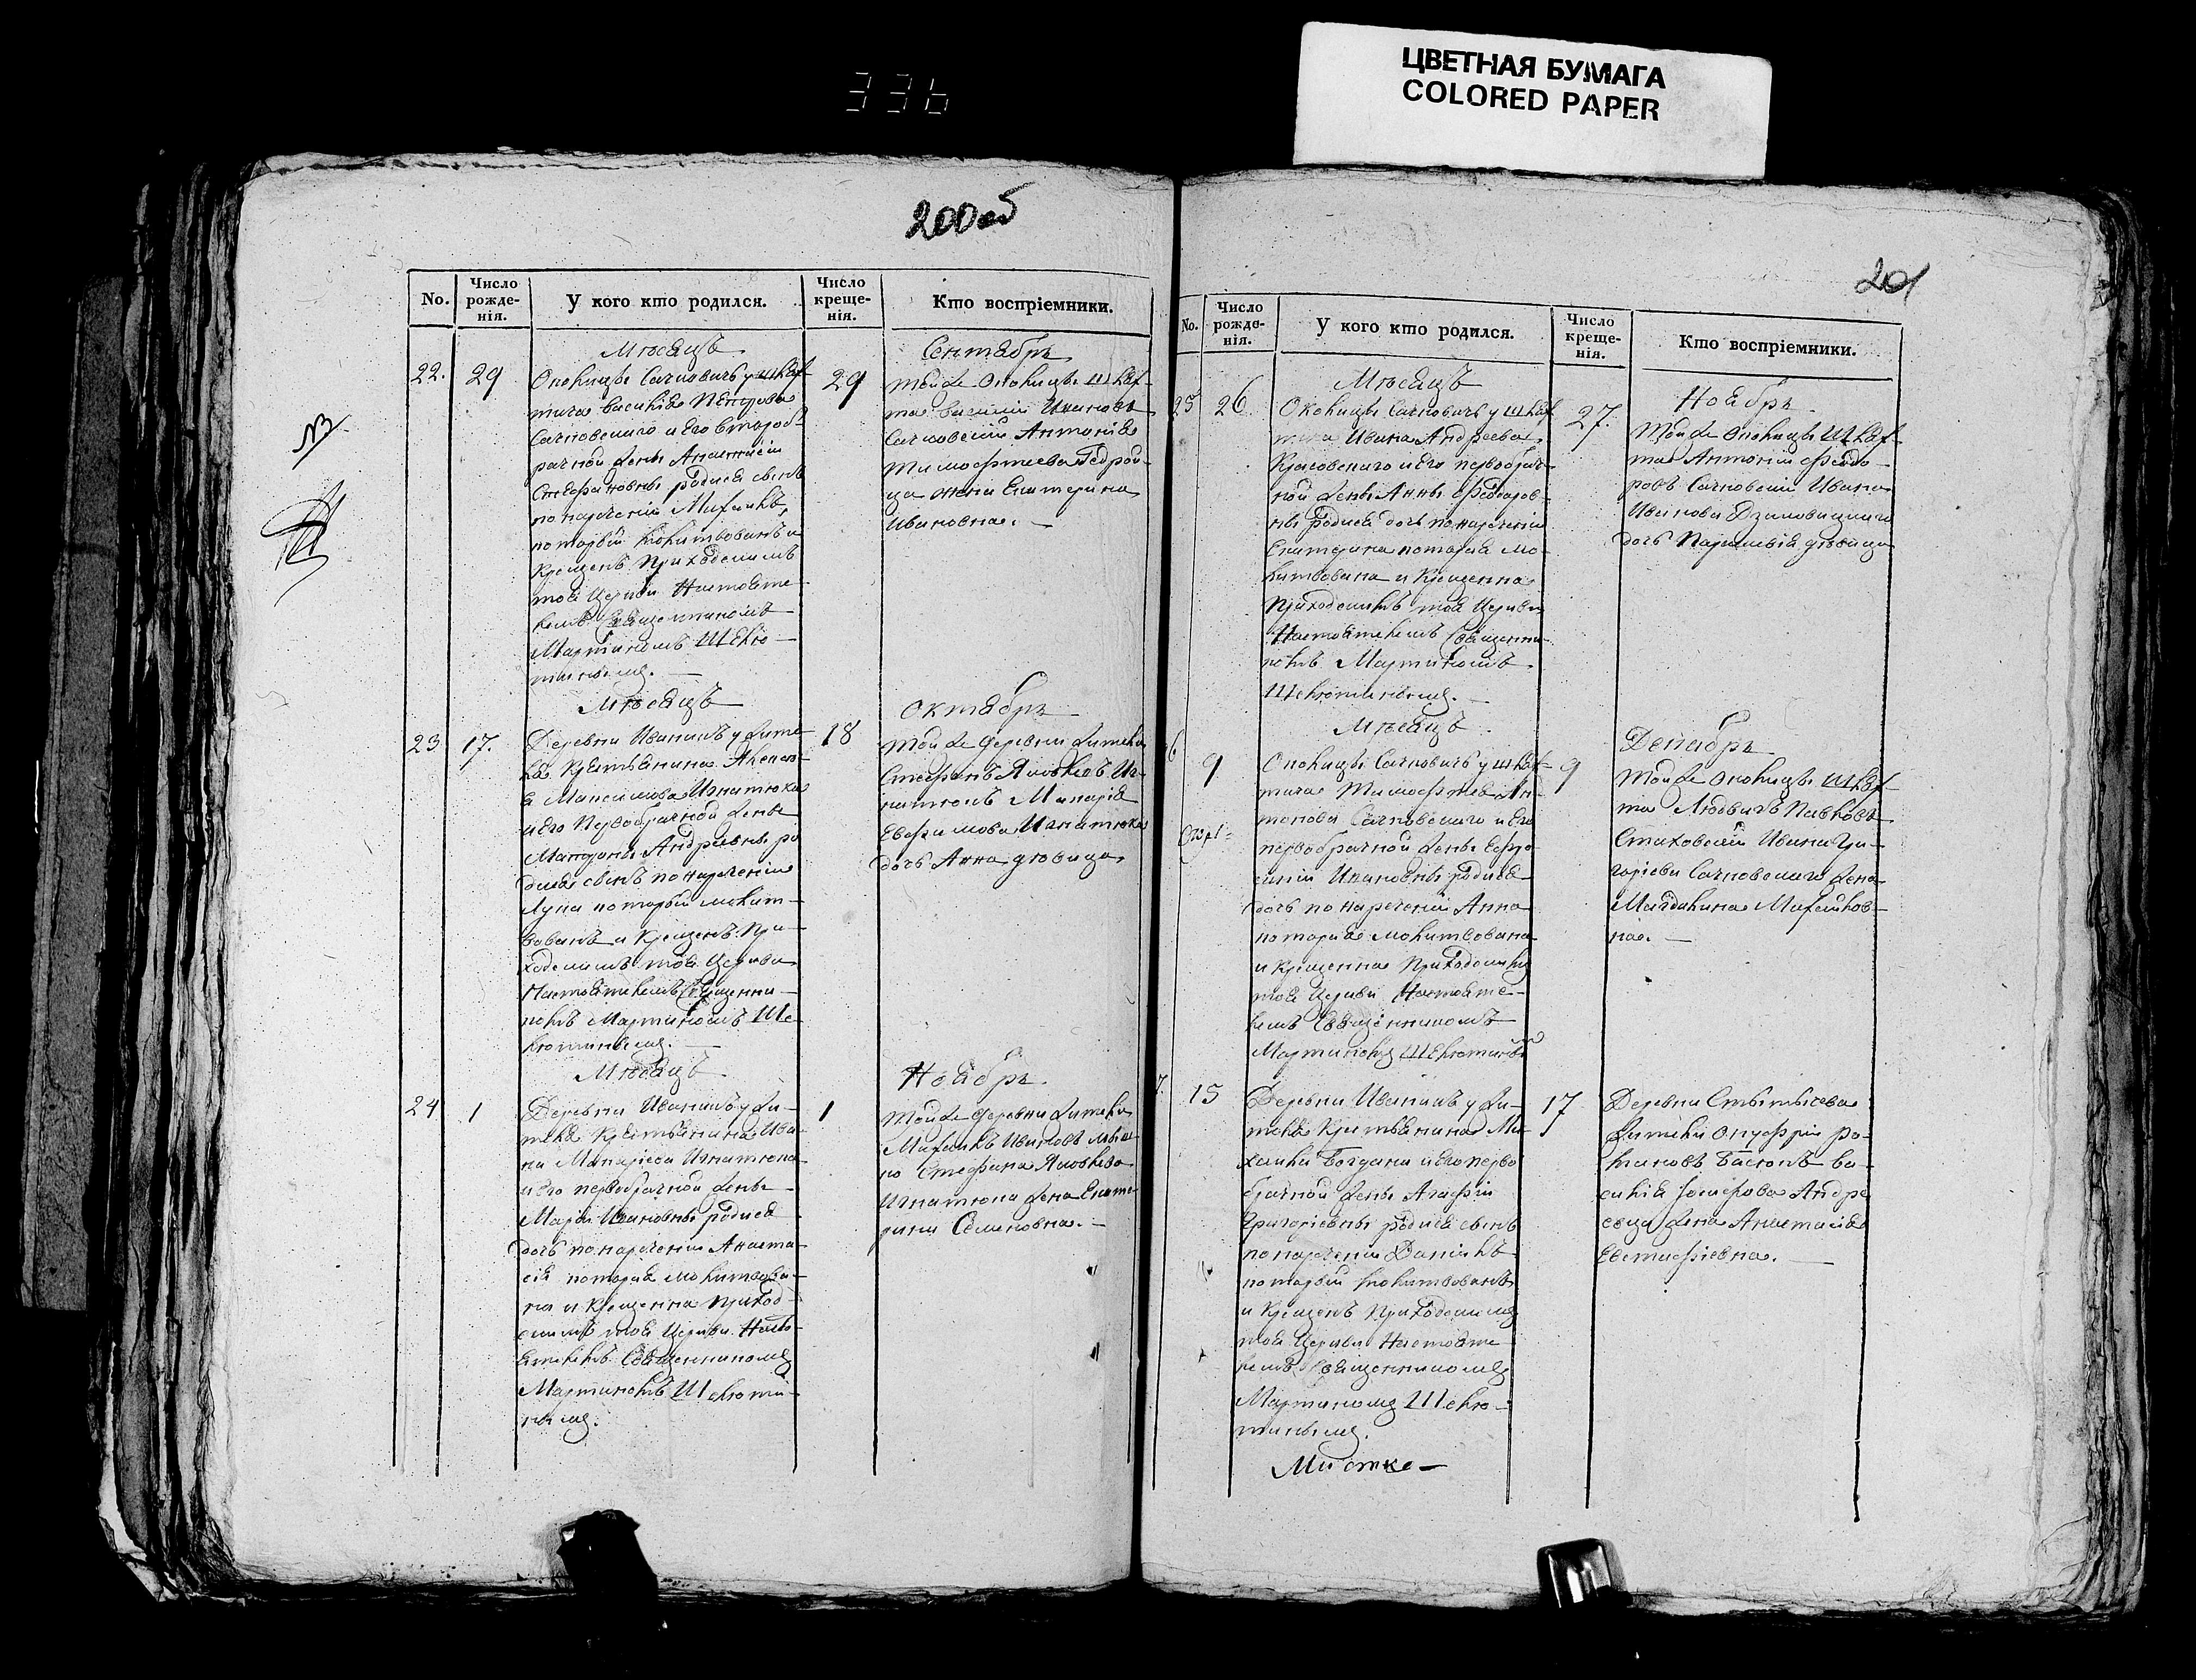 ЦВЕТНАЯ БУМАГА
COLORED PAPER
336
200об
No.
Число рожде-нія.
У кого кто родился.
Число креще-нія.
Кто воспріемники.
Мѣсяцъ
Сентябрь
22.
29
Околицы Сачковичъ у шлях-
тича Василія Петрова
Сачковскаго и Его второб-
рачной жены Анастасіи
Стефановны родился сынъ
по нареченію Михаилъ,
который молитвованъ и
крещенъ Приходскимъ
тоя Церкви Настояте-
лемъ Священникомъ
Мартиномъ
29
Той же Околицы Шлях-
та Василій Ивановъ
Сачковскій Антонія
Тимофѣева
жена Екатерина
Ивановна.
Мѣсяцъ
Октябрь
23
17.
Деревни Иваникъ у жите-
ля Крестьянина
Максимова Игнатюка
и Его Первобрачной жены
Андреевны ро
дился сынъ по нареченію
Лука который молит-
вованъ и Крещенъ При-
ходскимъ тоя Церкви
Настоятелемъ Священни-
комъ Мартиномъ
18
Той же деревни жители
Стефанъ Яковлевъ Иг-
натюкъ Макарія
Игнатюка
дочь Анна дѣвица
Мѣсяцъ
Ноябрь
24
1
Деревни Иваникъ у жи-
теля Крестьянина Ива-
на Макаріева Игнатюка
и Его первобрачной жены
Маріи Ивановны родися
дочь по нареченію Анаста-
сія которая молитвова-
на и Крещенна Приход-
скимъ тоя Церкви Насто-
ятелемъ Священникомъ
Мартиномъ
1
Той же деревни жители
Михаилъ Ивановъ
Стефана Яковлева
Игнатюка жена Екате
рина Семеновна.
201
No.
Число рожде-нія.
У кого кто родился.
Число креще-нія.
Кто воспріемники.
Мѣсяцъ
Ноябрь
25
26
Околицы Сачковичъ у шлях
тича Ивана Андреева
и Его первобрач-
ной жены Анны Феодоров-
ны родися дочь по нареченію
Екатерина которая мо-
литвована и Крещенна
Приходскимъ тоя Церкви
Настоятелемъ Священни-
комъ Мартиномъ
27.
Той же Околицы Шлях-
та Антоній Феодо-
ровъ Сачковскій Ивана
Иванова
дочь дѣвица
Мѣсяцъ
Декабрь
6
9
Околицы Сачковичъ у шлях-
тича Тимофѣя Ан-
тонова Сачковскаго и Его
первобрачной жены Ефро-
синіи Ивановны родися
дочь по нареченію Анна
которая молитвована
и Крещенна Приходскимъ
тоя Церкви Настояте-
лемъ Священникомъ
Мартиномъ
9
Той же Околицы Шлях-
та Людвигъ Павловъ
Стаховскій Ивана Гри-
горіева Сачковскаго жена
Магдалина Михайлов-
на.
7.
15
Деревни Иваникъ у жи-
теля Крестьянина Ми-
хаила Богдана и Его перво
брачной жены Агафіи
Григоріевны родися сынъ
по нареченію Даніилъ
который молитвованъ
и Крещенъ Приходскимъ
тоя Церкви Настояте
лемъ Священникомъ
Мартиномъ
17
Деревни
жители Онуфрій Ро-
мановъ Ва-
силія Андре
жена Анастасія
Евстафіевна.